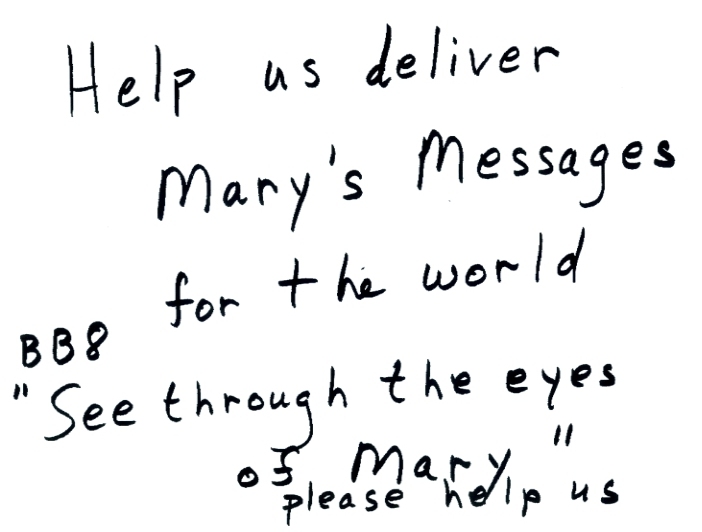 Help us deliver
Mary's Messages
for the world
BB8
"See through the eyes
of Mary"
please help us